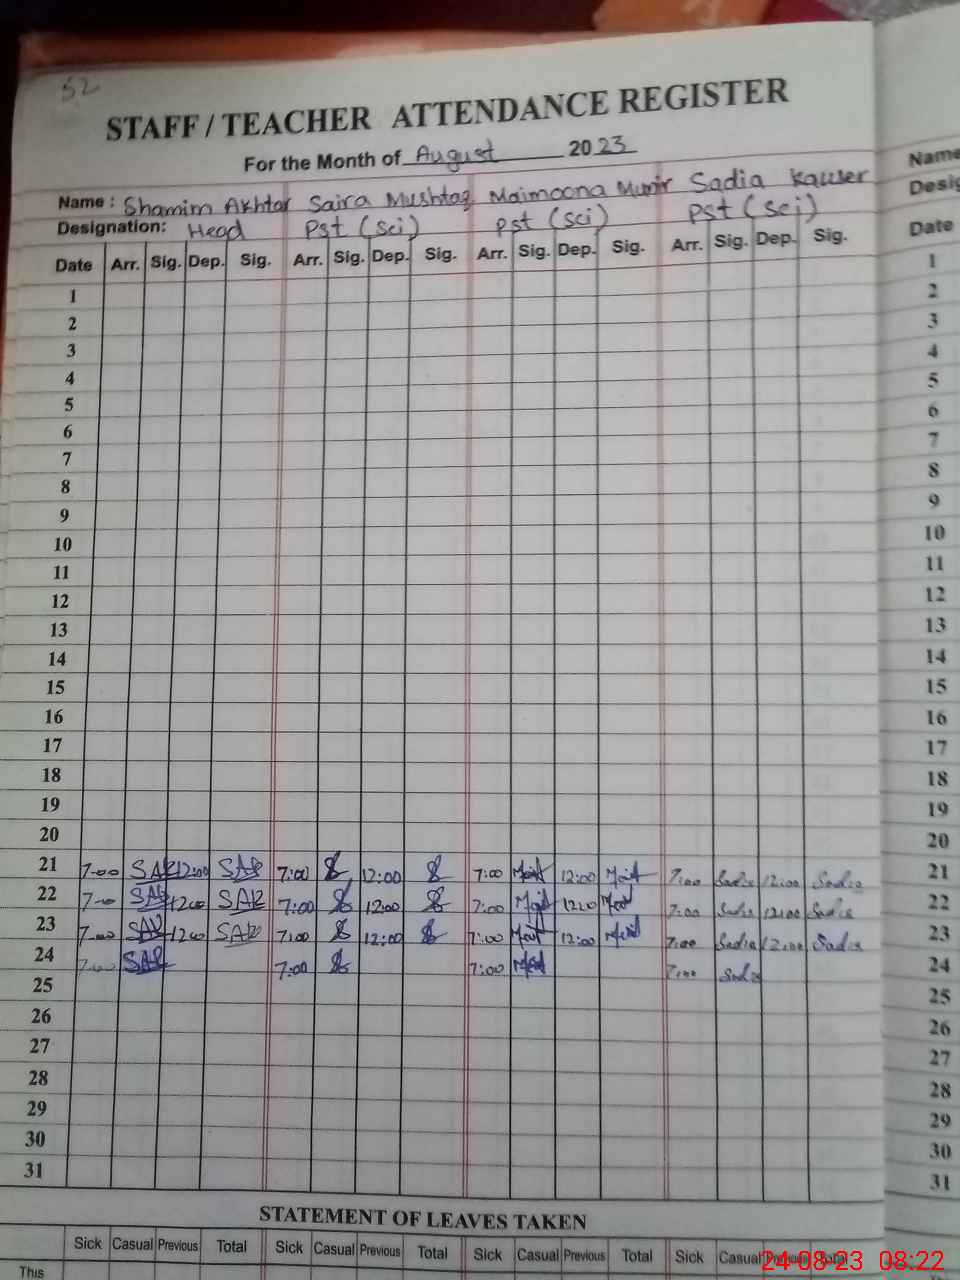 52
STAFF / TEACHER ATTENDANCE REGISTER
For the Month of August 2023
Name : Shamim Akhtar Saira Mushtaq Maimoona Munir Sadia Kauser
Designation: Head Pst (Sci) Pst (Sci) Pst (Sci)
Date Arr. Sig. Dep. Sig. Arr. Sig. Dep. Sig. Arr. Sig. Dep. Sig. Arr. Sig. Dep. Sig.
1
2
3
4
5
6
7
8
9
10
11
12
13
14
15
16
17
18
19
20
21 7-00 SAK 12:00 SAK 7:00 12:00 7:00 12:00 7:00 Sadia 12:00 Sadia
22 7-00 SAK 1200 SAK 7:00 12:00 7:00 12:00 7:00 Sadia 12:00 Sadia
23 7-00 SAK 1200 SAK 7:00 12:00 7:00 12:00 7:00 Sadia 12:00 Sadia
24 7:00 SAK 7:00 7:00 7:00 Sadia
25
26
27
28
29
30
31
STATEMENT OF LEAVES TAKEN
Sick Casual Previous Total Sick Casual Previous Total Sick Casual Previous Total Sick Casual Previous Total
This
Name
Desig
Date
1
2
3
4
5
6
7
8
9
10
11
12
13
14
15
16
17
18
19
20
21
22
23
24
25
26
27
28
29
30
31
24-08-23 08:22